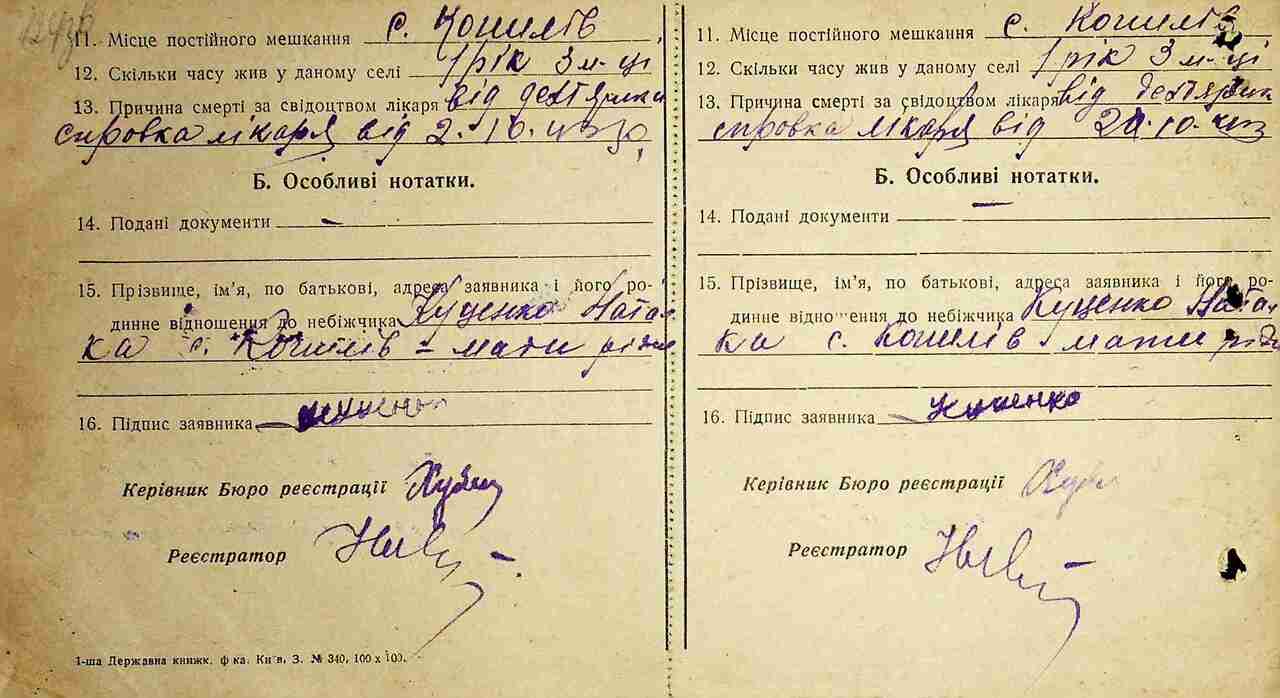 11. Місце постійного мешкання с. Копилів
12. Скільки часу жив у даному селі 1 рік 3 м-ці
13. Причина смерті за свідоцтвом лікаря від
справка лікаря від 2. 10.
Б. Особливі нотатки.
14. Подані документи —
15. Прізвище, ім'я, по батькові, адреса заявника і його ро-
динне відношення до небіжчика Куценко Натал
ка с. Копилів – мати рідна
16. Підпис заявника
Керівник Бюро реєстрації
Реєстратор
1-ша Державна книжк. ф ка. Київ, З. № 340, 100 х 100.
11. Місце постійного мешкання с. Копилів
12. Скільки часу жив у даному селі 1 рік 3 м-ці
13. Причина смерті за свідоцтвом лікаря від
справка лікаря від 10.
Б. Особливі нотатки.
14. Подані документи —
15. Прізвище, ім'я, по батькові, адреса заявника і його ро-
динне відношення до небіжчика Куценко Натал
ка с. Копилів мати рідн
16. Підпис заявника Куценко
Керівник Бюро реєстрації
Реєстратор